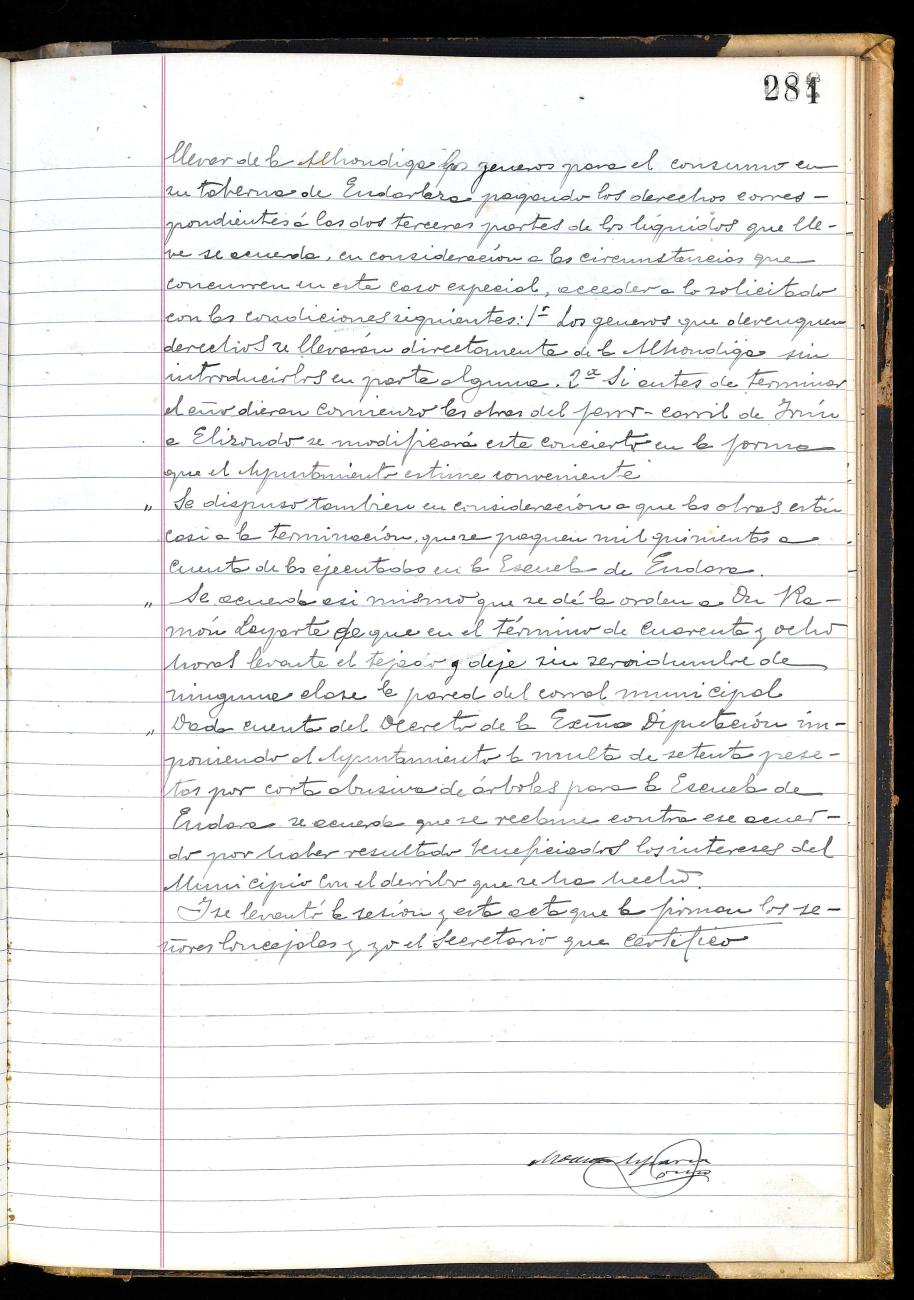 281
llevar de la Alhondiga los generos para el consumo en
su taberna de Endarlaza pagando los derechos corres-
pondientes á las dos terceras partes de los líquidos que lle-
ve se acuerda, en consideración a las circunstancias que
concurren en este caso especial, acceder a lo solicitado
con las condiciones siguientes: 1ª Los generos que devenguen
derechos se llevarán directamente de la Alhondiga sin
introducirlos en parte alguna. 2ª Si antes de terminar
el año dieran comienzo las obras del ferro-carril de Irún
a Elizondo se modificará este concierto en la forma
que el Ayuntamiento estime conveniente
" Se dispuso tambien en consideración a que las obras están
casi a la terminación, que se paguen mil quinientas a
cuenta de las ejecutadas en la Escuela de Endara.
" Se acuerda asi mismo que se dé la orden a Dn Ra-
món Loyarte de que en el término de cuarenta y ocho
horas levante el tejado y deje sin servidumbre de
ninguna clase la pared del corral municipal
" Dada cuenta del Decreto de la Exma Diputación im-
poniendo al Ayuntamiento la multa de setenta pese-
tas por corta abusiva de árboles para la Escuela de
Endara se acuerda que se reclame contra ese acuer-
do por haber resultado beneficiados los intereses del
Municipio con el derribo que se ha hecho.
I se levantó la sesión y esta acta que la firman los se-
ñores Concejales y yo el Secretario que certifico